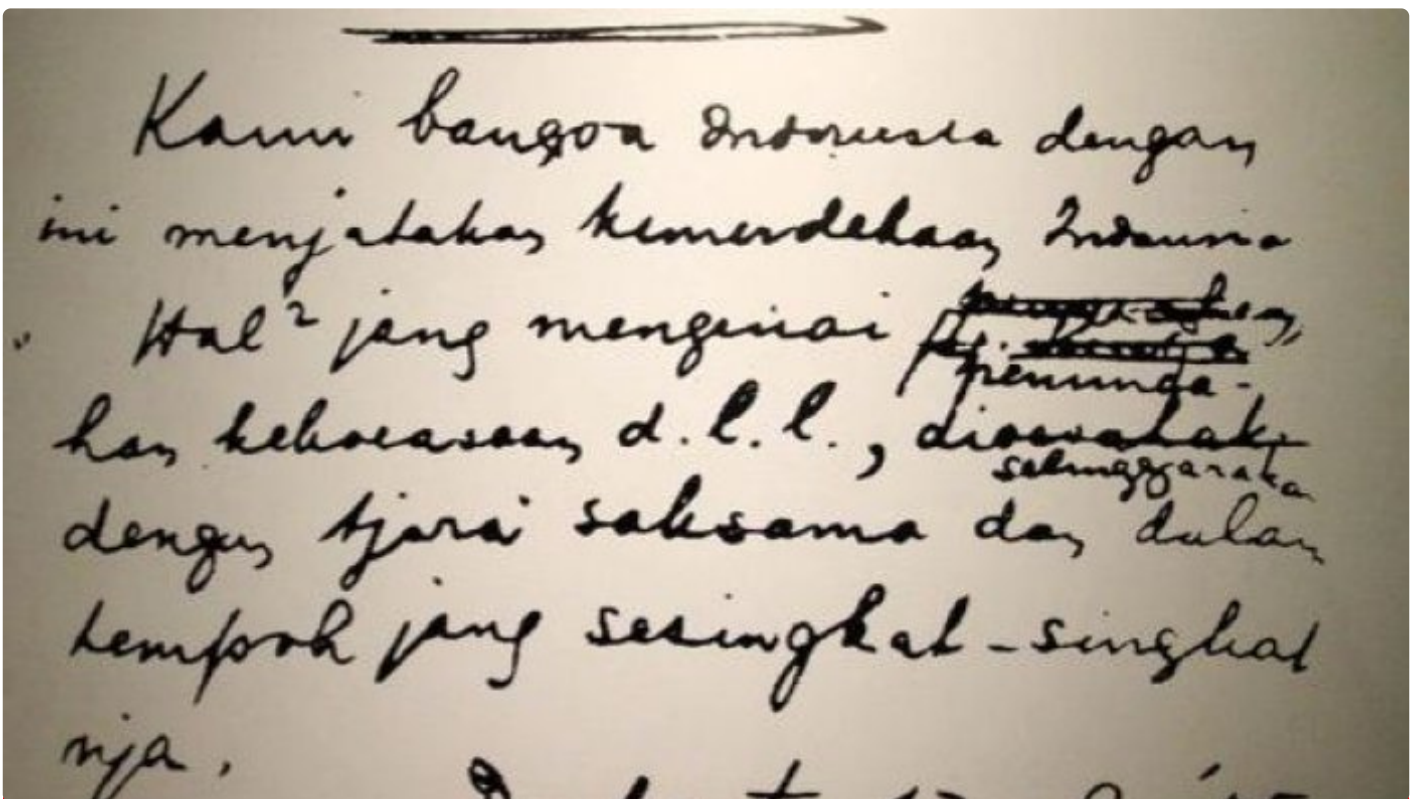 Kami bangsa Indonesia dengan
ini menjatakan kemerdekaan Indonesia
Hal² jang mengenai
peminda-
han kekoeasaan d.l.l., dioesahakan
selenggarakan
dengan tjara saksama dan dalam
tempoh jang sesingkat-singkat
nja.